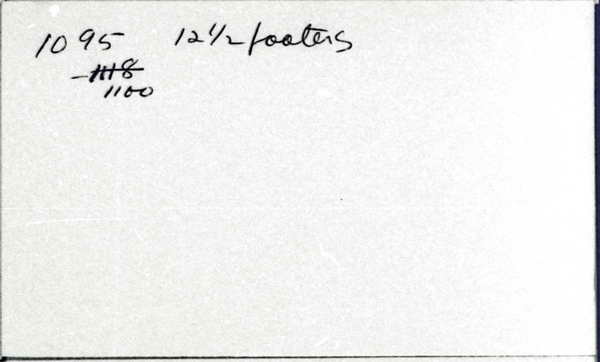 1095 12 1/2 footers
-1118
1100